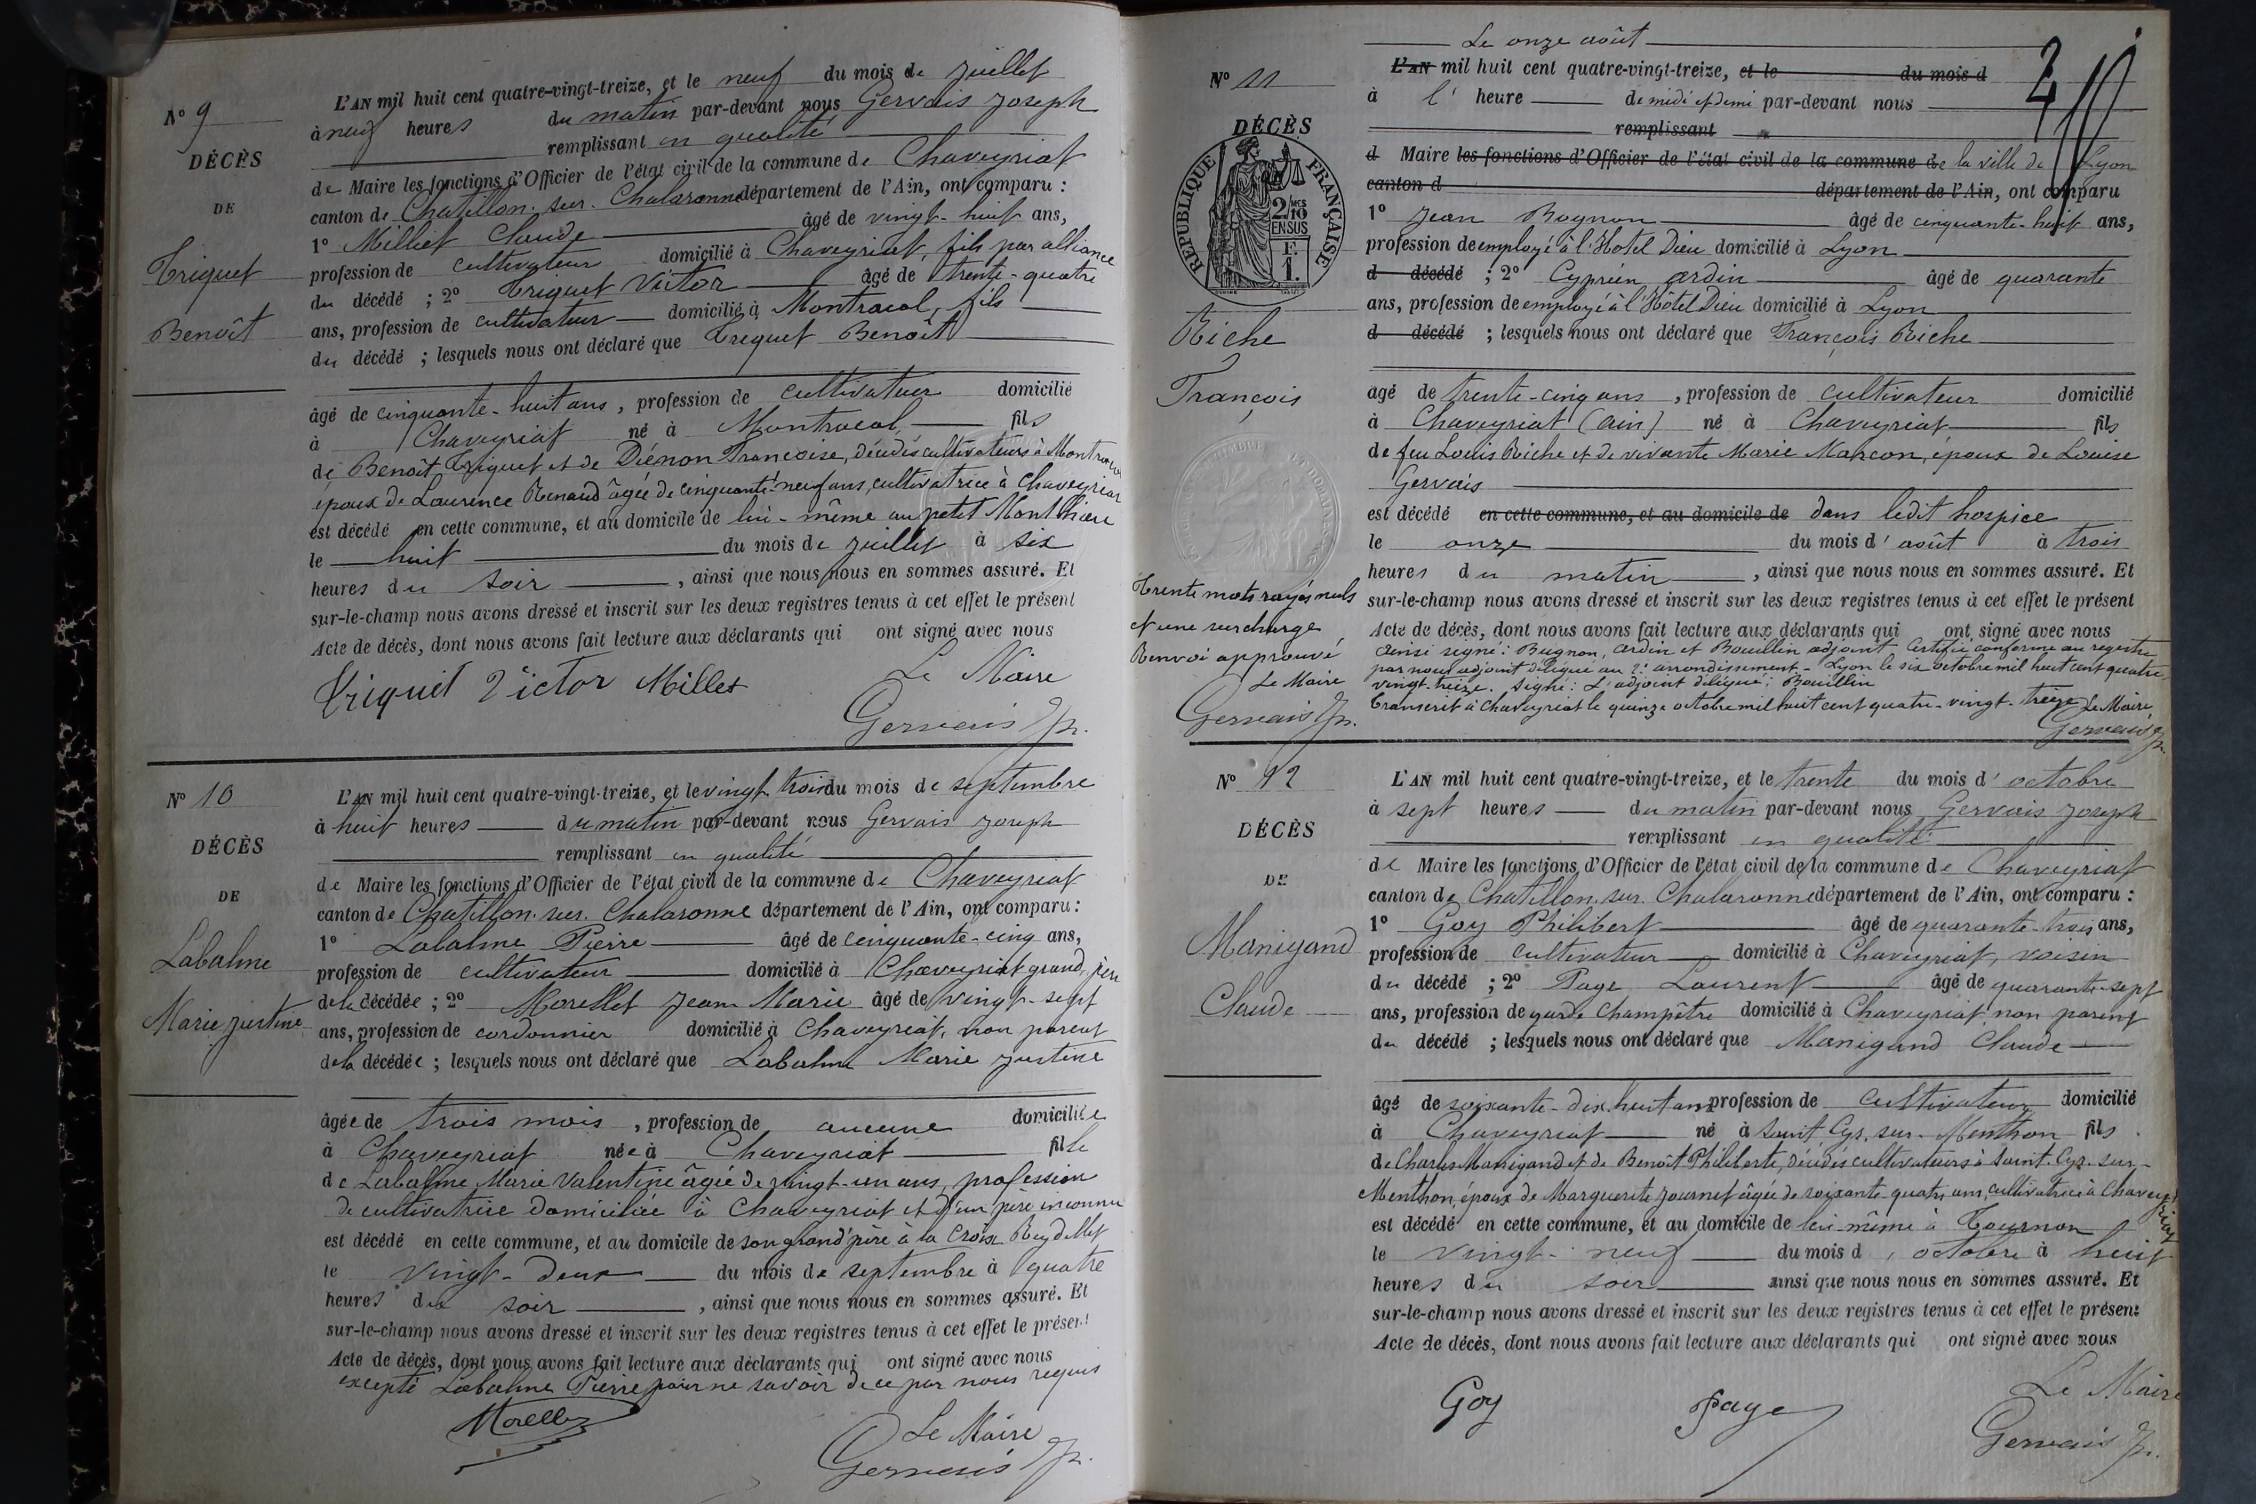 N° 9
DÉCÈS
DE
Triquet
Benoît
L'AN mil huit cent quatre-vingt-treize, et le neuf du mois de juillet
à neuf heures du matin par-devant nous Gervais Joseph
remplissant en qualité
de Maire les fonctions d'Officier de l'état civil de la commune de Chaveyriat
canton de Chatillon-sur-Chalaronne département de l'Ain, ont comparu :
1° Milliet Claude âgé de vingt-huit ans,
profession de cultivateur domicilié à Chaveyriat, fils par alliance
du décédé ; 2° Triquet Victor âgé de trente-quatre
ans, profession de cultivateur domicilié à Montracol, fils
du décédé ; lesquels nous ont déclaré que Triquet Benoît
âgé de cinquante-huit ans, profession de cultivateur domicilié
à Chaveyriat né à Montracol, fils
de Benoît Triquet et de Diénon Françoise, décédés cultivateurs à Montracol
époux de Laurence Renaud âgée de cinquante-neuf ans, cultivatrice à Chaveyriat
est décédé en cette commune, et au domicile de lui-même au petit Monthieu
le huit du mois de juillet à six
heures du soir, ainsi que nous nous en sommes assuré. Et
sur-le-champ nous avons dressé et inscrit sur les deux registres tenus à cet effet le présent
Acte de décès, dont nous avons fait lecture aux déclarants qui ont signé avec nous
Triquet Victor Milliet Le Maire
Gervais Jh.
N° 10
DÉCÈS
DE
Labalme
Marie Justine
L'AN mil huit cent quatre-vingt-treize, et le vingt-trois du mois de septembre
à huit heures du matin par-devant nous Gervais Joseph
remplissant en qualité
de Maire les fonctions d'Officier de l'état civil de la commune de Chaveyriat
canton de Chatillon-sur-Chalaronne département de l'Ain, ont comparu :
1° Labalme Pierre âgé de cinquante-cinq ans,
profession de cultivateur domicilié à Chaveyriat grand père
de la décédée ; 2° Morellet Jean Marie âgé de vingt-sept
ans, profession de cordonnier domicilié à Chaveyriat, non parent
de la décédée ; lesquels nous ont déclaré que Labalme Marie Justine
âgée de trois mois, profession de aucune domiciliée
à Chaveyriat née à Chaveyriat fille
de Labalme Marie Valentine âgée de vingt-un ans, profession
de cultivatrice domiciliée à Chaveyriat et d'un père inconnu
est décédé en cette commune, et au domicile de son grand'père à la Croix Reydellet
le vingt-deux du mois de septembre à quatre
heures du soir, ainsi que nous nous en sommes assuré. Et
sur-le-champ nous avons dressé et inscrit sur les deux registres tenus à cet effet le présent
Acte de décès, dont nous avons fait lecture aux déclarants qui ont signé avec nous
excepté Labalme Pierre pour ne savoir de ce par nous requis
Morellet Le Maire
Gervais Jh.
N° 11
DÉCÈS
RÉPUBLIQUE FRANÇAISE
2/10 MES
EN SUS
F.
1.
Riche
François
Trente mots rayés nuls
et une surcharge
Renvoi approuvé
Le Maire
Gervais Jh.
Le onze août
L'AN mil huit cent quatre-vingt-treize, et le du mois d
à l' heure de midi et demi par-devant nous
remplissant
d Maire les fonctions d'Officier de l'état civil de la commune de la ville de Lyon
canton d département de l'Ain, ont comparu
1° Jean Bugnon âgé de cinquante-huit ans,
profession de employé à l'Hotel Dieu domicilié à Lyon
d décédé ; 2° Cyprien Ardin âgé de quarante
ans, profession de employé à l'Hôtel Dieu domicilié à Lyon
d décédé ; lesquels nous ont déclaré que François Riche
agé de trente-cinq ans, profession de cultivateur domicilié
à Chaveyriat (Ain) né à Chaveyriat fils
de feu Louis Riche et de vivante Marie Marcon, époux de Louise
Gervais
est décédé en cette commune, et au domicile de dans ledit hospice
le onze du mois d'août à trois
heures du matin, ainsi que nous nous en sommes assuré. Et
sur-le-champ nous avons dressé et inscrit sur les deux registres tenus à cet effet le présent
Acte de décès, dont nous avons fait lecture aux déclarants qui ont signé avec nous
Ainsi signé : Bugnon, Ardin et Bouillin adjoint Certifié conforme au registre
par nous adjoint délégué au 2e arrondissement - Lyon le six octobre mil huit cent quatre
vingt-treize. Signé : L'adjoint délégué : Bouillin
Transcrit à Chaveyriat le quinze octobre mil huit cent quatre-vingt-treize Le Maire
Gervais Jh.
N° 12
DÉCÈS
DE
Manigand
Claude
L'AN mil huit cent quatre-vingt-treize, et le trente du mois d'octobre
à sept heures du matin par-devant nous Gervais Joseph
remplissant en qualité
de Maire les fonctions d'Officier de l'état civil de la commune de Chaveyriat
canton de Chatillon-sur-Chalaronne département de l'Ain, ont comparu :
1° Goy Philibert âgé de quarante-trois ans,
profession de cultivateur domicilié à Chaveyriat, voisin
du décédé ; 2° Page Laurent âgé de quarante-sept
ans, profession de garde champêtre domicilié à Chaveyriat non parent
du décédé ; lesquels nous ont déclaré que Manigand Claude
âgé de soixante-dix-huit ans profession de cultivateur domicilié
à Chaveyriat né à Saint Cyr-sur-Menthon fils
de Charles Manigand et de Benoît Philiberte, décédés cultivateurs à Saint-Cyr-sur-
Menthon, époux de Marguerite Journet âgée de soixante-quatre ans, cultivatrice à Chaveyriat
est décédé en cette commune, et au domicile de lui-même à Tournon
le vingt-neuf du mois d'octobre à huit
heures du soir ainsi que nous nous en sommes assuré. Et
sur-le-champ nous avons dressé et inscrit sur les deux registres tenus à cet effet le présent
Acte de décès, dont nous avons fait lecture aux déclarants qui ont signé avec nous
Goy Page Le Maire
Gervais Jh.